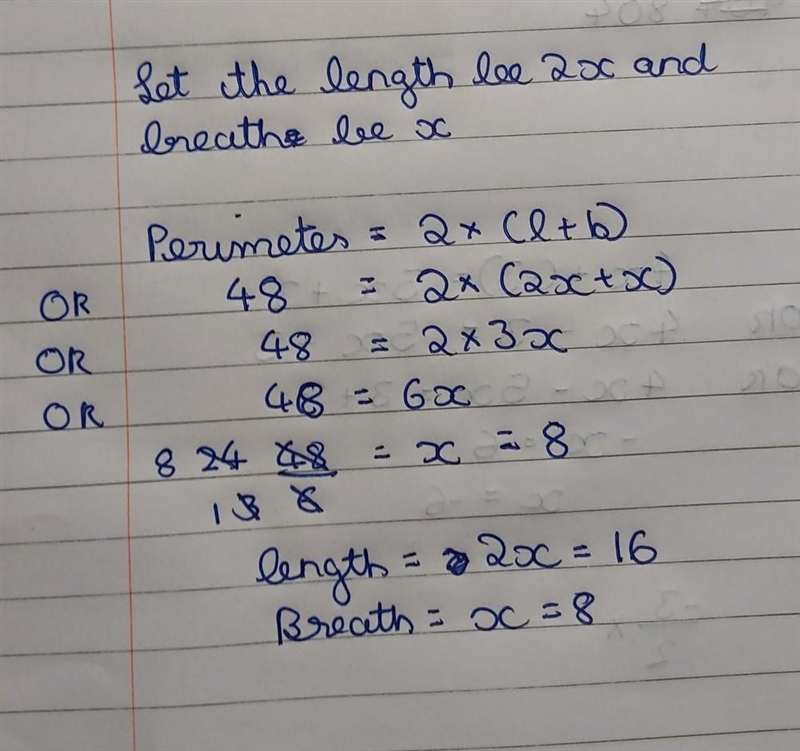 Let the length be 2x and
breath be x
Perimeter = 2 × (l + b)
OR 48 = 2 × (2x + x)
OR 48 = 2 × 3x
OR 48 = 6x
8 24 48 = x = 8
1 3 6
length = 2x = 16
Breath = x = 8